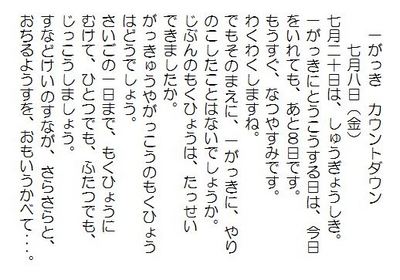 一がっき　カウントダウン
七月八日（金）
七月二十日は、しゅうぎょうしき。
一がっきにとうこうする日は、今日
をいれても、あと８日です。
もうすぐ、なつやすみです。
わくわくしますね。
でもそのまえに、一がっきに、やり
のこしたことはないでしょうか。
じぶんのもくひょうは、たっせい
できましたか。
がっきゅうやがっこうのもくひょう
はどうでしょう。
さいごの一日まで、もくひょうに
むけて、ひとつでも、ふたつでも、
じっこうしましょう。
すなどけいのすなが、さらさらと、
おちるようすを、おもいうかべて・・・。